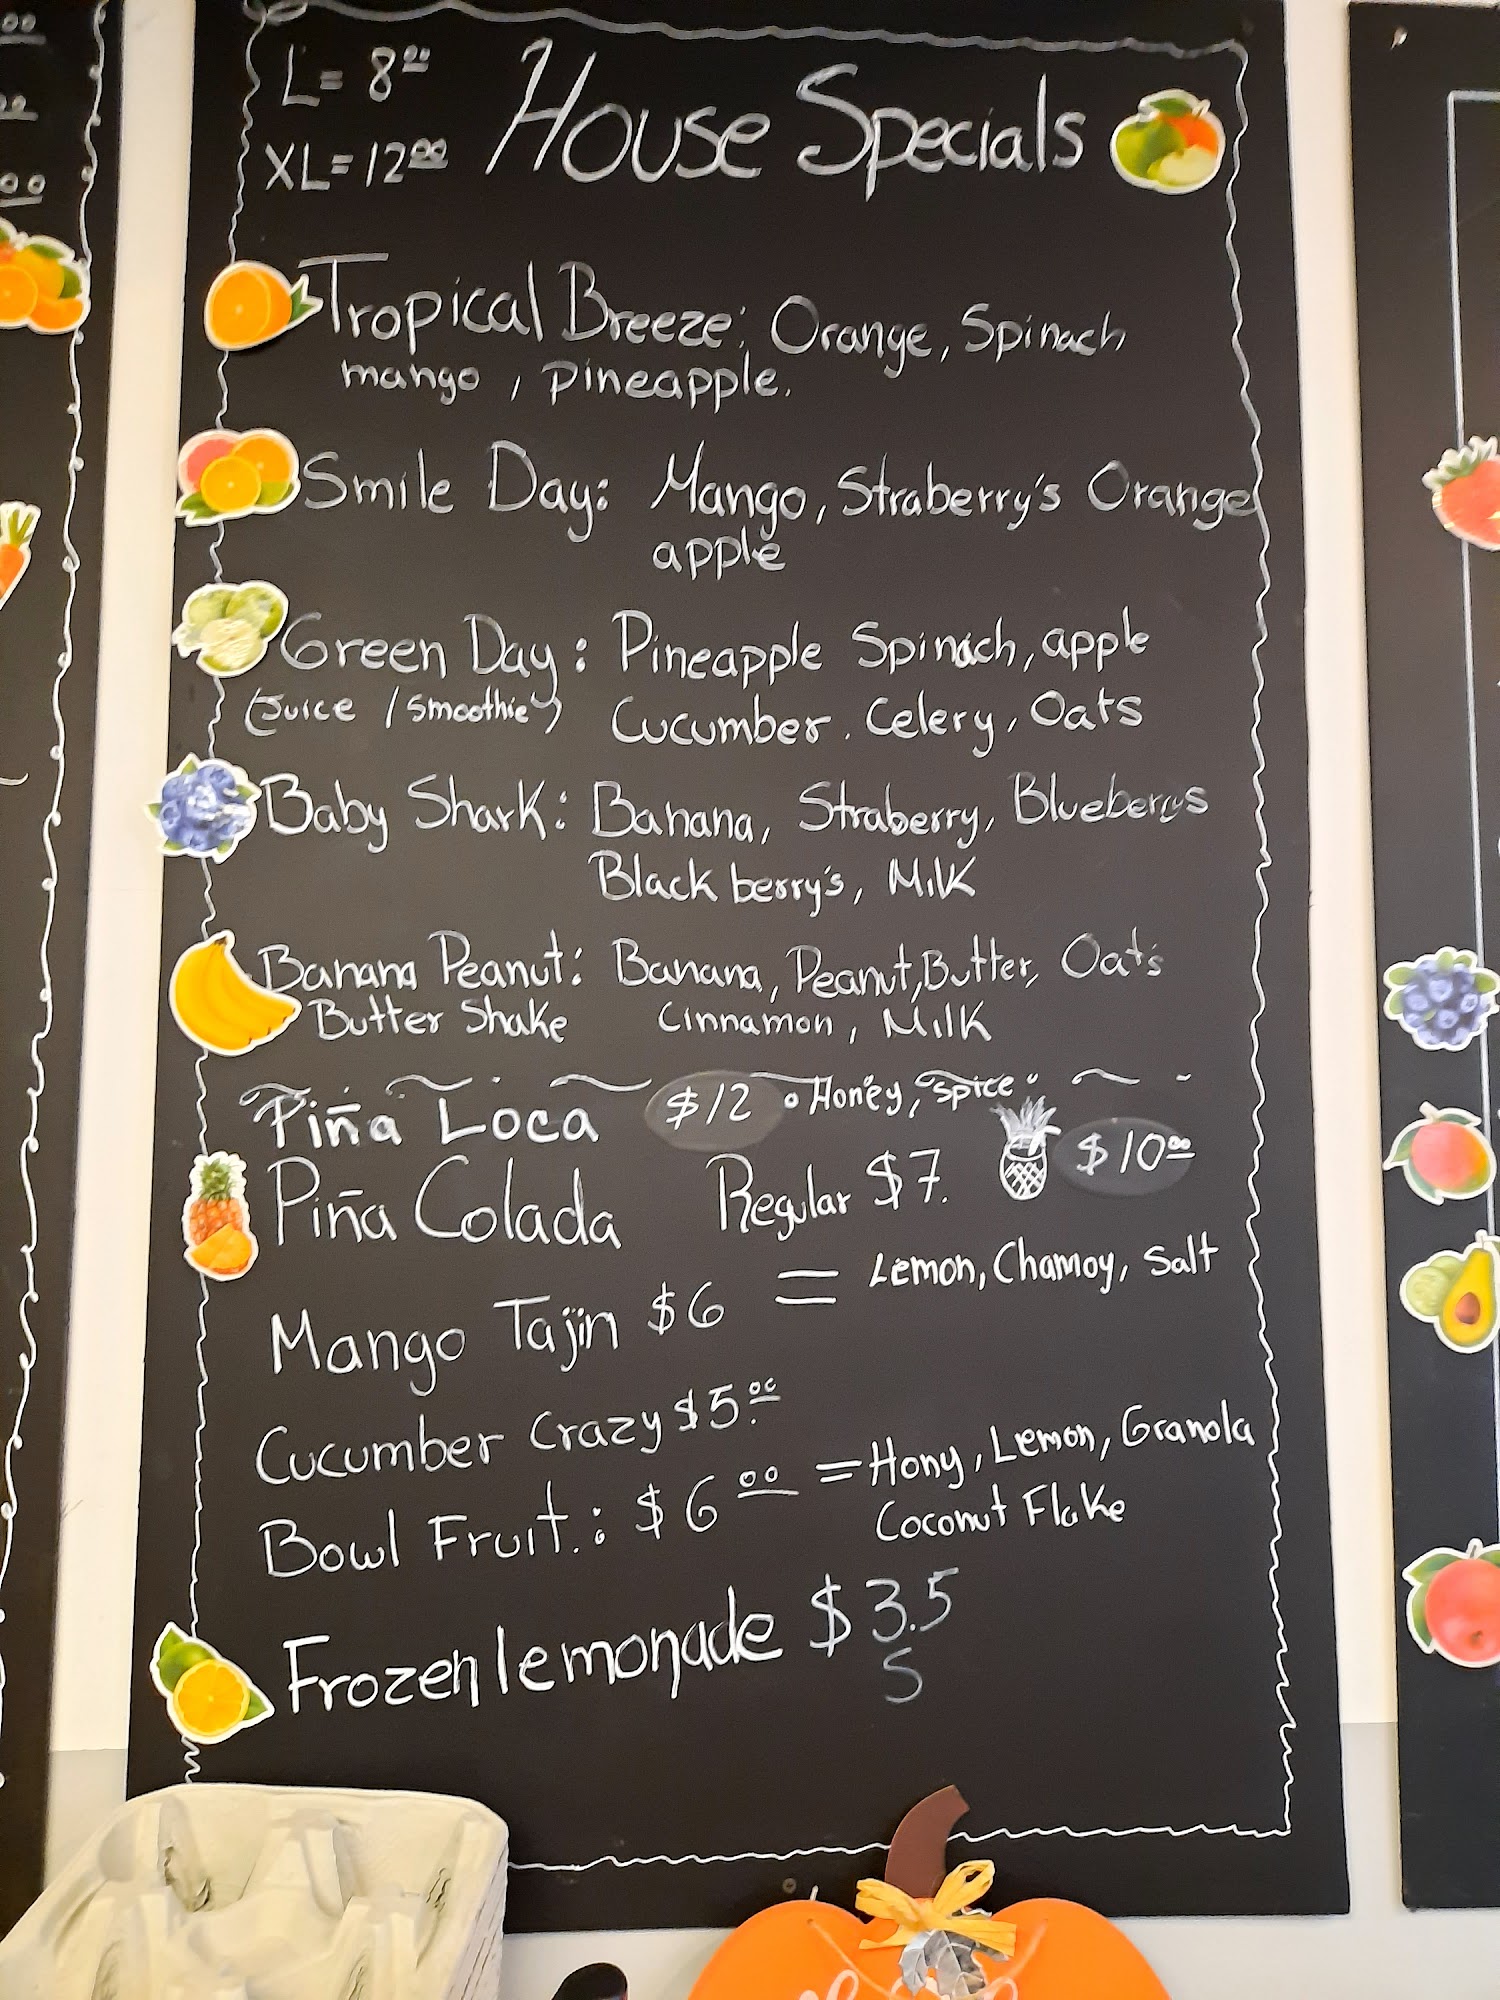 L= 8.00
XL=12.00
House Specials
Tropical Breeze: Orange, Spinach,
mango, pineapple.
Smile Day: Mango, Straberry's Orange
apple
Green Day: Pineapple Spinach, apple
(Juice / Smoothie) Cucumber. Celery, Oats
Baby Shark: Banana, Straberry, Blueberrys
Black berry's, Milk
Banana Peanut: Banana, Peanut, Butter, Oats
Butter Shake Cinnamon, Milk
Piña Loca $12 • Honey, Spice
Piña Colada Regular $7. $10.00
Mango Tajin $6 = Lemon, Chamoy, Salt
Cucumber Crazy $5.00
Bowl Fruit.: $6.00 = Hony, Lemon, Granola
Coconut Flake
Frozen lemonade $3.5
5